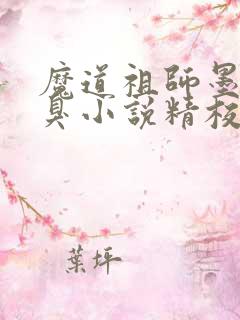 魔道祖師墨
臭小說精校
葉坪